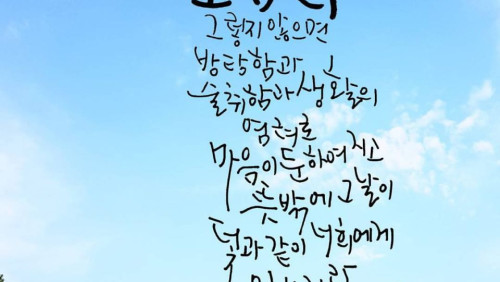 그렇지 않으면
방탕함과
술취함과 생활의
염려로
마음이 둔하여지고
뜻밖에 그 날이
덫과 같이 너희에게